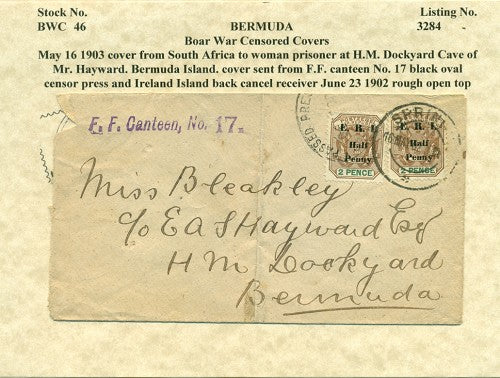 Stock No. Listing No.
BWC 46 BERMUDA 3284 -
Boar War Censored Covers
May 16 1903 cover from South Africa to woman prisoner at H.M. Dockyard Cave of
Mr. Hayward. Bermuda Island. cover sent from F.F. canteen No. 17 black oval
censor press and Ireland Island back cancel receiver June 23 1902 rough open top
F. F. Canteen, No. 17.
E. R. I. E. R. I.
Half Half
Penny Penny
2 PENCE 2 PENCE
Miss Bleakley
c/o E A S Hayward Esq
H M Dockyard
Bermuda